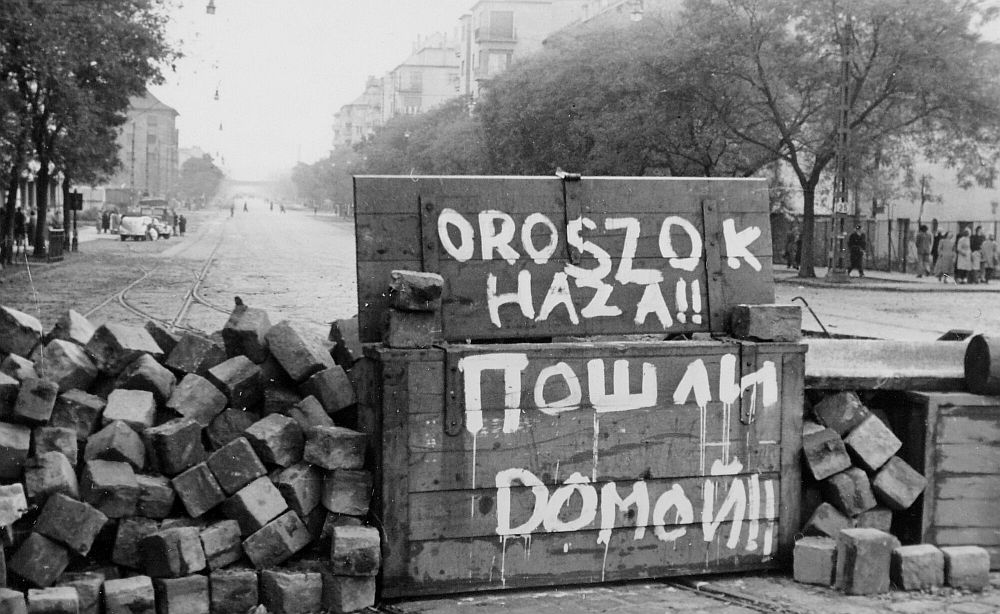 OROSZOK
HAZA!!
ПОШЛИ
DОМОЙ!!